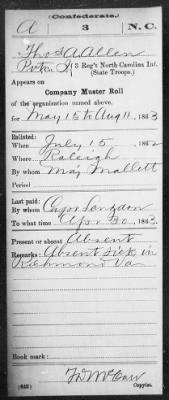 (Confederate)
A 3 N.C.
Thos A Allen
Prvt, 3 Reg't North Carolina Inf.
(State Troops.)
Appears on
Company Muster Roll
of the organization named above,
for May 15 to Aug 11, 1863
Enlisted:
When July 15, 1862
Where Raleigh
By whom Maj Mallett
Period
Last paid:
By whom Capt Langdon
To what time Apr 30, 1863
Present or absent Absent
Remarks: Absent sick in
Richmond Va
Book mark:
(642) Copyist.